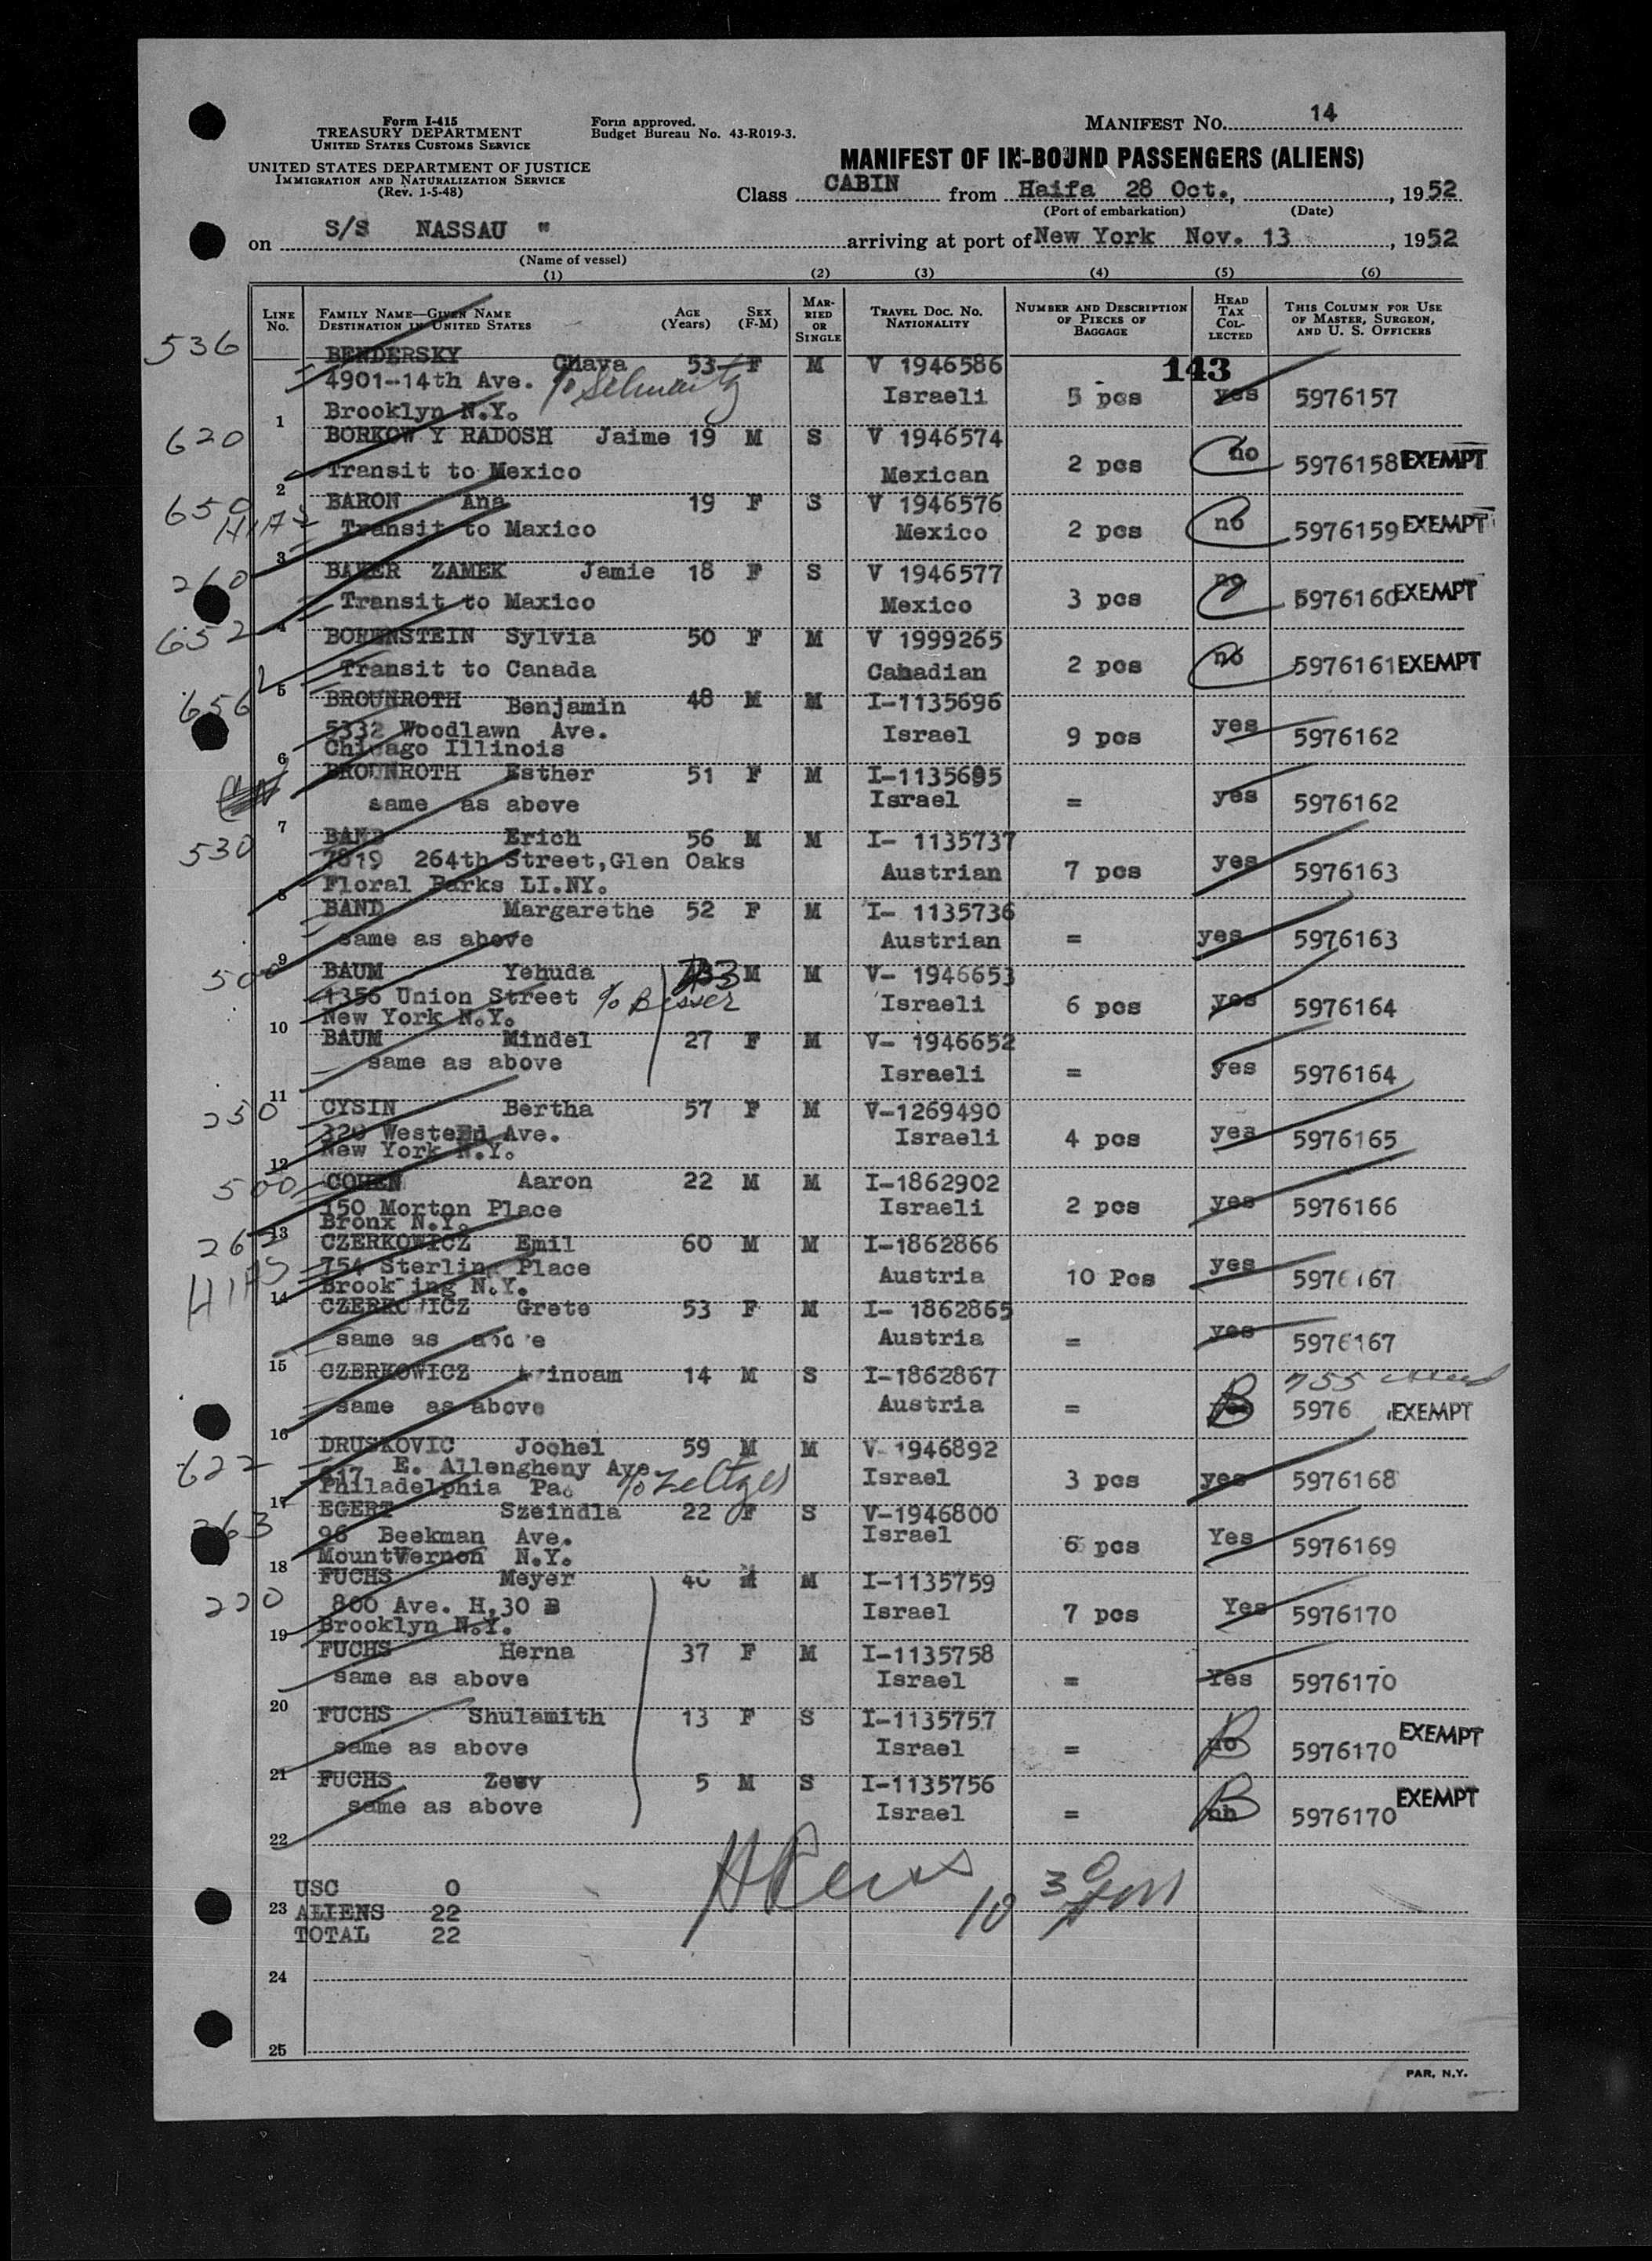 Form I-415
TREASURY DEPARTMENT
UNITED STATES CUSTOMS SERVICE
UNITED STATES DEPARTMENT OF JUSTICE
IMMIGRATION AND NATURALIZATION SERVICE
(Rev. 1-5-48)
Form approved.
Budget Bureau No. 43-R019-3.
MANIFEST NO. 14
MANIFEST OF IN-BOUND PASSENGERS (ALIENS)
Class CABIN from Haifa 28 Oct., , 1952
(Port of embarkation) (Date)
on S/S NASSAU " arriving at port of New York Nov. 13 , 1952
(Name of vessel)
(1) (2) (3) (4) (5) (6)
LINE NO. FAMILY NAME—GIVEN NAME DESTINATION IN UNITED STATES AGE (YEARS) SEX (F-M) MARRIED OR SINGLE TRAVEL DOC. NO. NATIONALITY NUMBER AND DESCRIPTION OF PIECES OF BAGGAGE HEAD TAX COLLECTED THIS COLUMN FOR USE OF MASTER, SURGEON, AND U. S. OFFICERS
536 BENDERSKY Chaya 53 F M V 1946586 143
4901-14th Ave. c/o Schwartz Israeli 5 pcs yes 5976157
1 Brooklyn N.Y.
620 BORKOW Y RADOSH Jaime 19 M S V 1946574
Transit to Mexico Mexican 2 pcs no 5976158 EXEMPT
2
650 BARON Ana 19 F S V 1946576
HIAS Transit to Maxico Mexico 2 pcs no 5976159 EXEMPT
3
260 BAKER ZAMEK Jamie 18 F S V 1946577
Transit to Maxico Mexico 3 pcs no 5976160 EXEMPT
4
652 BORENSTEIN Sylvia 50 F M V 1999265
Transit to Canada Canadian 2 pcs no 5976161 EXEMPT
5
656 BROUNROTH Benjamin 48 M M I-1135696
5332 Woodlawn Ave. Israel 9 pcs yes 5976162
6 Chicago Illinois
BROUNROTH Esther 51 F M I-1135695
same as above Israel = yes 5976162
7
530 BAND Erich 56 M M I- 1135737
7819 264th Street,Glen Oaks Austrian 7 pcs yes 5976163
8 Floral Parks LI.NY.
BAND Margarethe 52 F M I- 1135736
same as above Austrian = yes 5976163
9
500 BAUM Yehuda 33 M M V- 1946653
1356 Union Street c/o Besser Israeli 6 pcs yes 5976164
10 New York N.Y.
BAUM Mindel 27 F M V- 1946652
same as above Israeli = yes 5976164
11
250 CYSIN Bertha 57 F M V-1269490
320 WesteEnd Ave. Israeli 4 pcs yes 5976165
12 New York N.Y.
500 COHEN Aaron 22 M M I-1862902
150 Morton Place Israeli 2 pcs yes 5976166
13 Bronx N.Y.
265 CZERKOWICZ Emil 60 M M I-1862866
HIAS 754 Sterling Place Austria 10 Pcs yes 5976167
14 Brook ing N.Y.
CZERKOWICZ Grete 53 F M I- 1862865
same as above Austria = yes 5976167
15
CZERKOWICZ inoam 14 M S I-1862867 755
same as above Austria = 5976 EXEMPT
16
622 DRUSKOVIC Jochel 59 M M V- 1946892
617 E. Allengheny Ave. Israel 3 pcs yes 5976168
17 Philadelphia Pa. c/o Zeltzer
263 EGERT Szeindla 22 F S V-1946800
96 Beekman Ave. Israel 6 pcs Yes 5976169
18 MountVernon N.Y.
220 FUCHS Meyer 40 M M I-1135759
800 Ave. H,30 B Israel 7 pcs Yes 5976170
19 Brooklyn N.Y.
FUCHS Herna 37 F M I-1135758
same as above Israel = Yes 5976170
20
FUCHS Shulamith 13 F S I-1135757
same as above Israel = no 5976170 EXEMPT
21
FUCHS Zeev 5 M S I-1135756
same as above Israel = 5976170 EXEMPT
22
USC 0
23 ALIENS 22
TOTAL 22
24
25
PAR, N.Y.